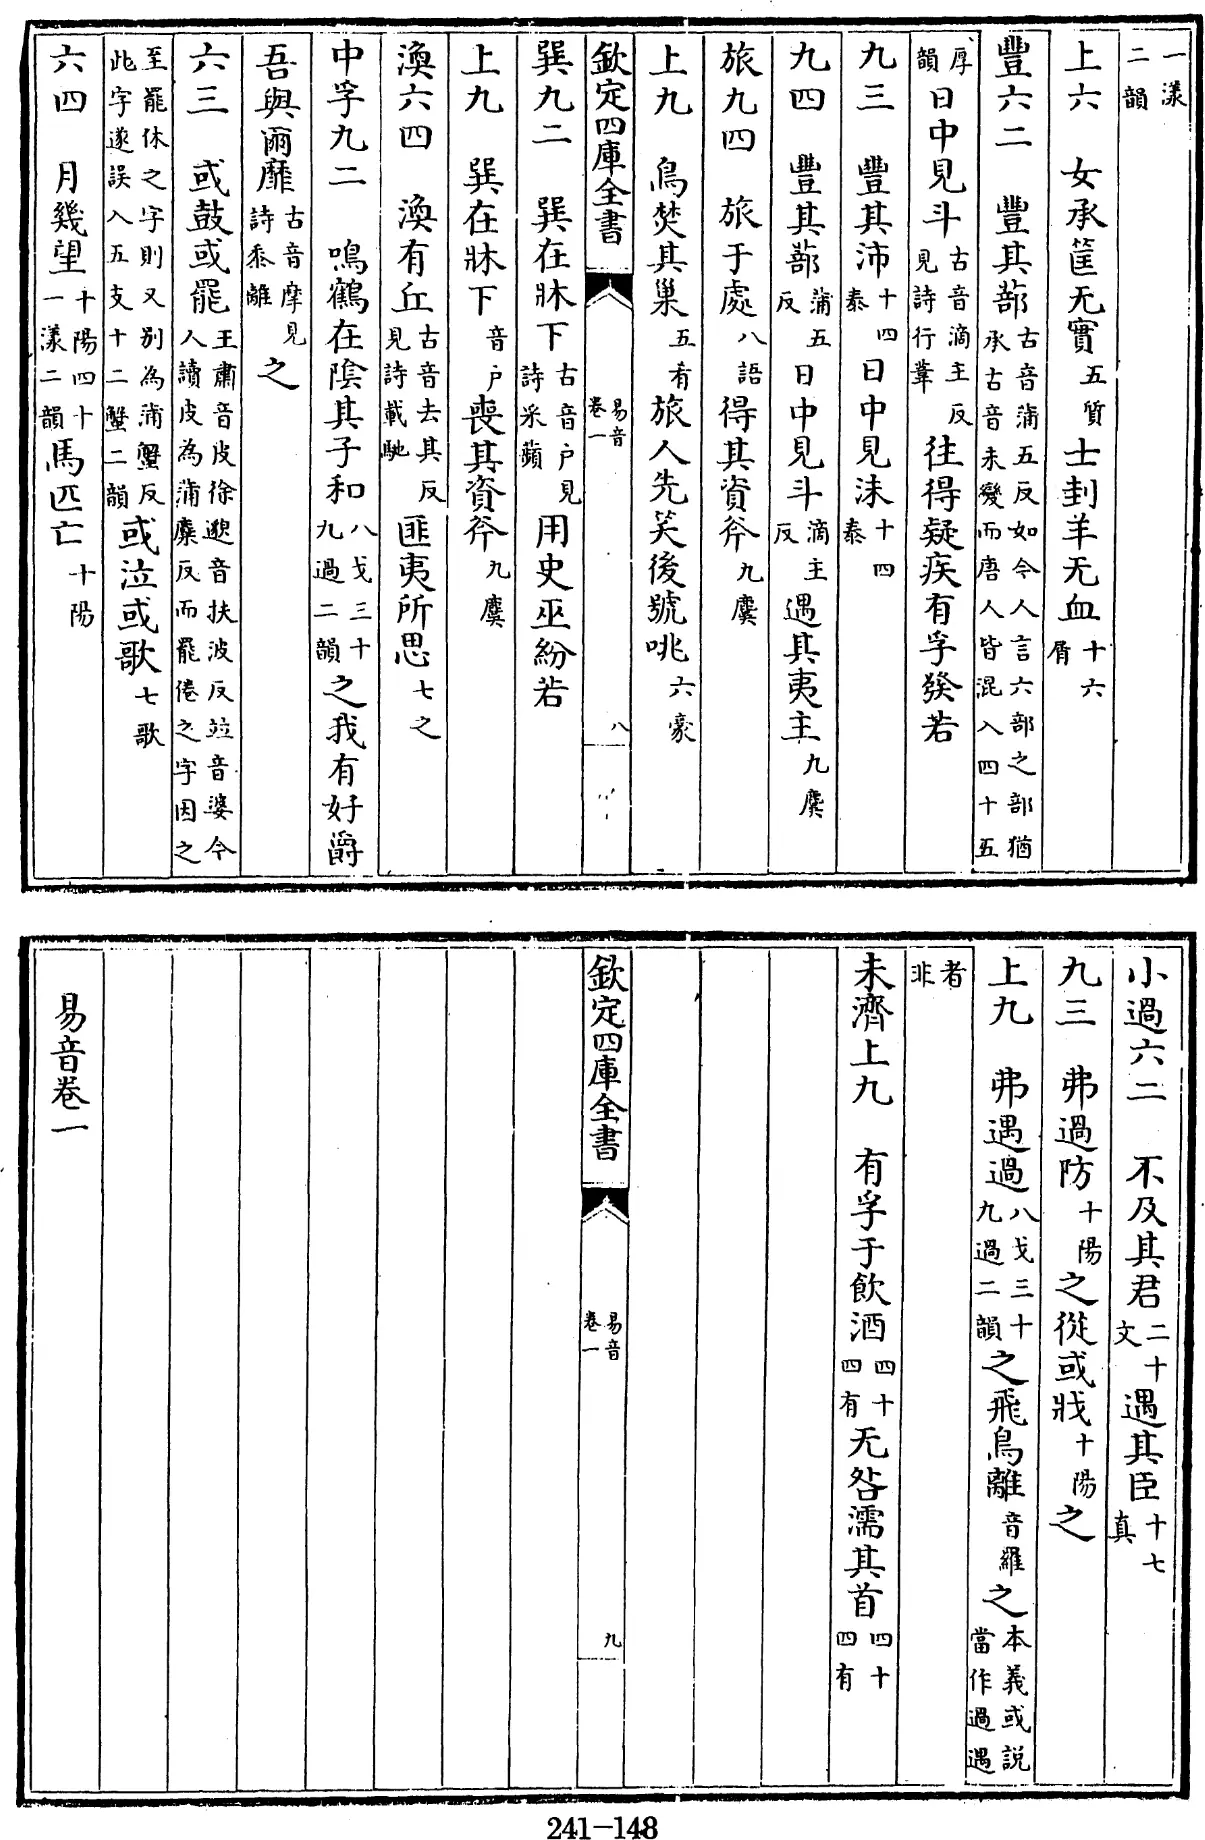 一漾二韻
上六　女承筐无實五質士刲羊无血十六屑
豐六二　豐其蔀古音蒲五反如今人言六部之部猶承古音未變而唐人皆混入四十五
厚韻日中見斗古音滴主反見詩行葦往得疑疾有孚發若
九三　豐其沛十四泰日中見沬十四泰
九四　豐其蔀蒲五反日中見斗滴主反遇其夷主九麌
旅九四　旅于處八語得其資斧九麌
上九　鳥焚其巢五肴旅人先笑後號咷六豪
欽定四庫全書　易音卷一　八
巽九二　巽在牀下古音戶見詩采蘋用史巫紛若
上九　巽在牀下音戶喪其資斧九麌
渙六四　渙有丘古音去其反見詩載馳匪夷所思七之
中孚九二　鳴鶴在陰其子和八戈三十九過二韻之我有好爵
吾與爾靡古音摩見詩黍離之
六三　或鼓或罷王肅音皮徐邈音扶波反竝音婆今人讀皮為蒲麋反而罷倦之字因之
至罷休之字則又别為蒲蟹反此字遂誤入五支十二蟹二韻或泣或歌七歌
六四　月幾望十陽四十一漾二韻馬匹亡十陽
小過六二　不及其君二十文遇其臣十七真
九三　弗過防十陽之從或戕十陽之
上九　弗遇過八戈三十九過二韻之飛鳥離音羅之本義或說當作過遇
者非
未濟上九　有孚于飲酒四十四有无咎濡其首四十四有
欽定四庫全書　易音卷一　九
易音卷一
241-148